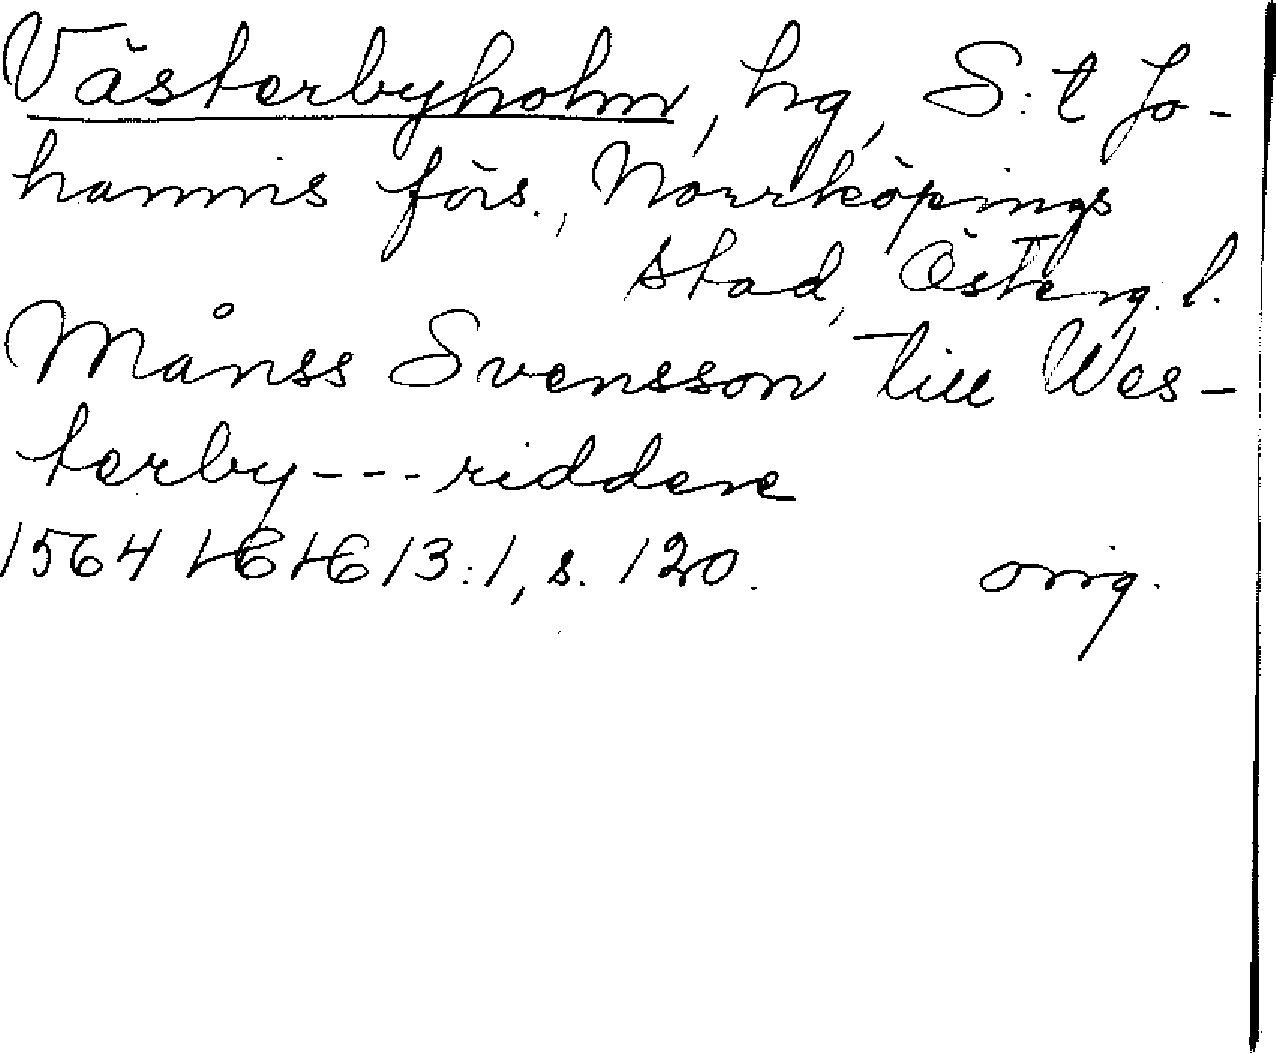 Västerbyholm, hg, S:t Jo-
hannis förs., Norrköpings
stad, Österg. l.
Månss Svensson till Wes-
terby --- riddere
1564 HH 13:1, s. 120. orig.